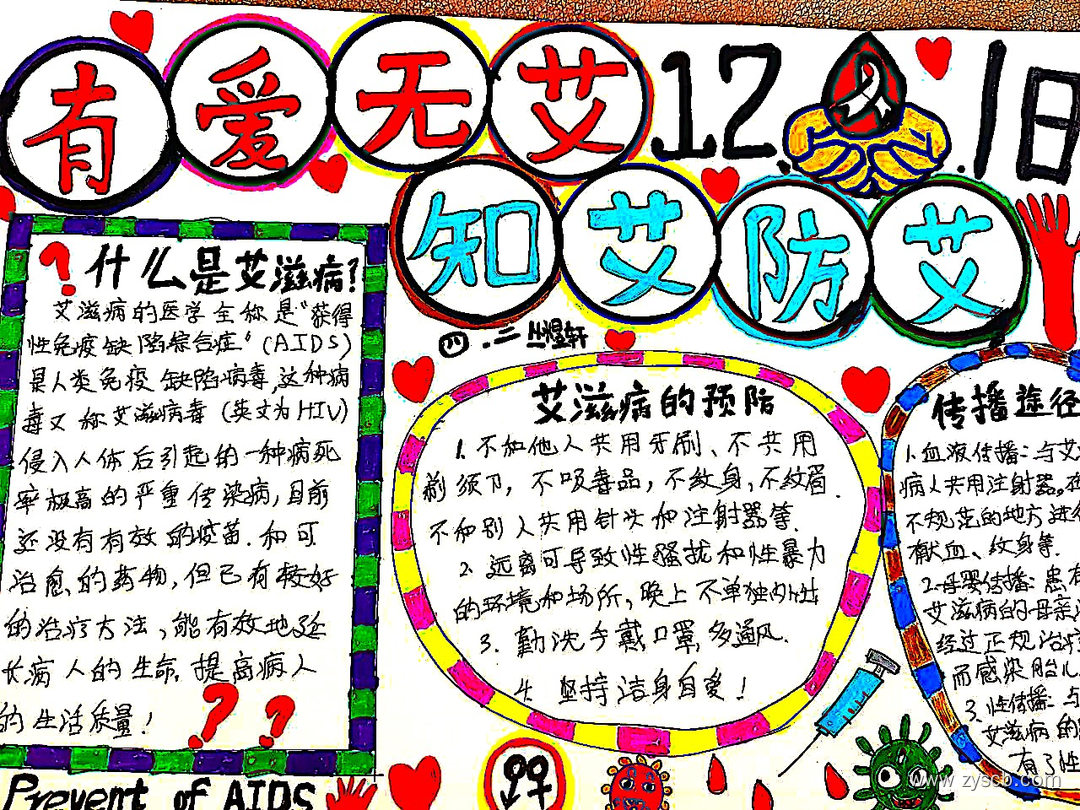 有爱无艾 12.1日
知艾防艾
四.二
什么是艾滋病?
艾滋病的医学全称是"获得
性免疫缺陷综合症"(AIDS)
是人类免疫缺陷病毒,这种病
毒又称艾滋病毒(英文为HIV)
侵入人体后引起的一种病死
率极高的严重传染病,目前
还没有有效的疫苗.和可
治愈的药物,但已有较好
的治疗方法,能有效地延
长病人的生命,提高病人
的生活质量!
Prevent of AIDS
艾滋病的预防
1.不和他人共用牙刷、不共用
剃须刀,不吸毒品,不纹身,不纹眉.
不和别人共用针头和注射器等.
2.远离可导致性骚扰和性暴力
的环境和场所,晚上不单独外出
3.勤洗手戴口罩,多通风.
4.坚持洁身自爱!
传播途径
1.血液传播:与艾
病人共用注射器。在
不规范的地方进行
献血、纹身等.
2.母婴传播:患有
艾滋病的母亲
经过正规治疗
而感染胎儿
3.性传播:与
艾滋病的
有了性
www.zyscb.com